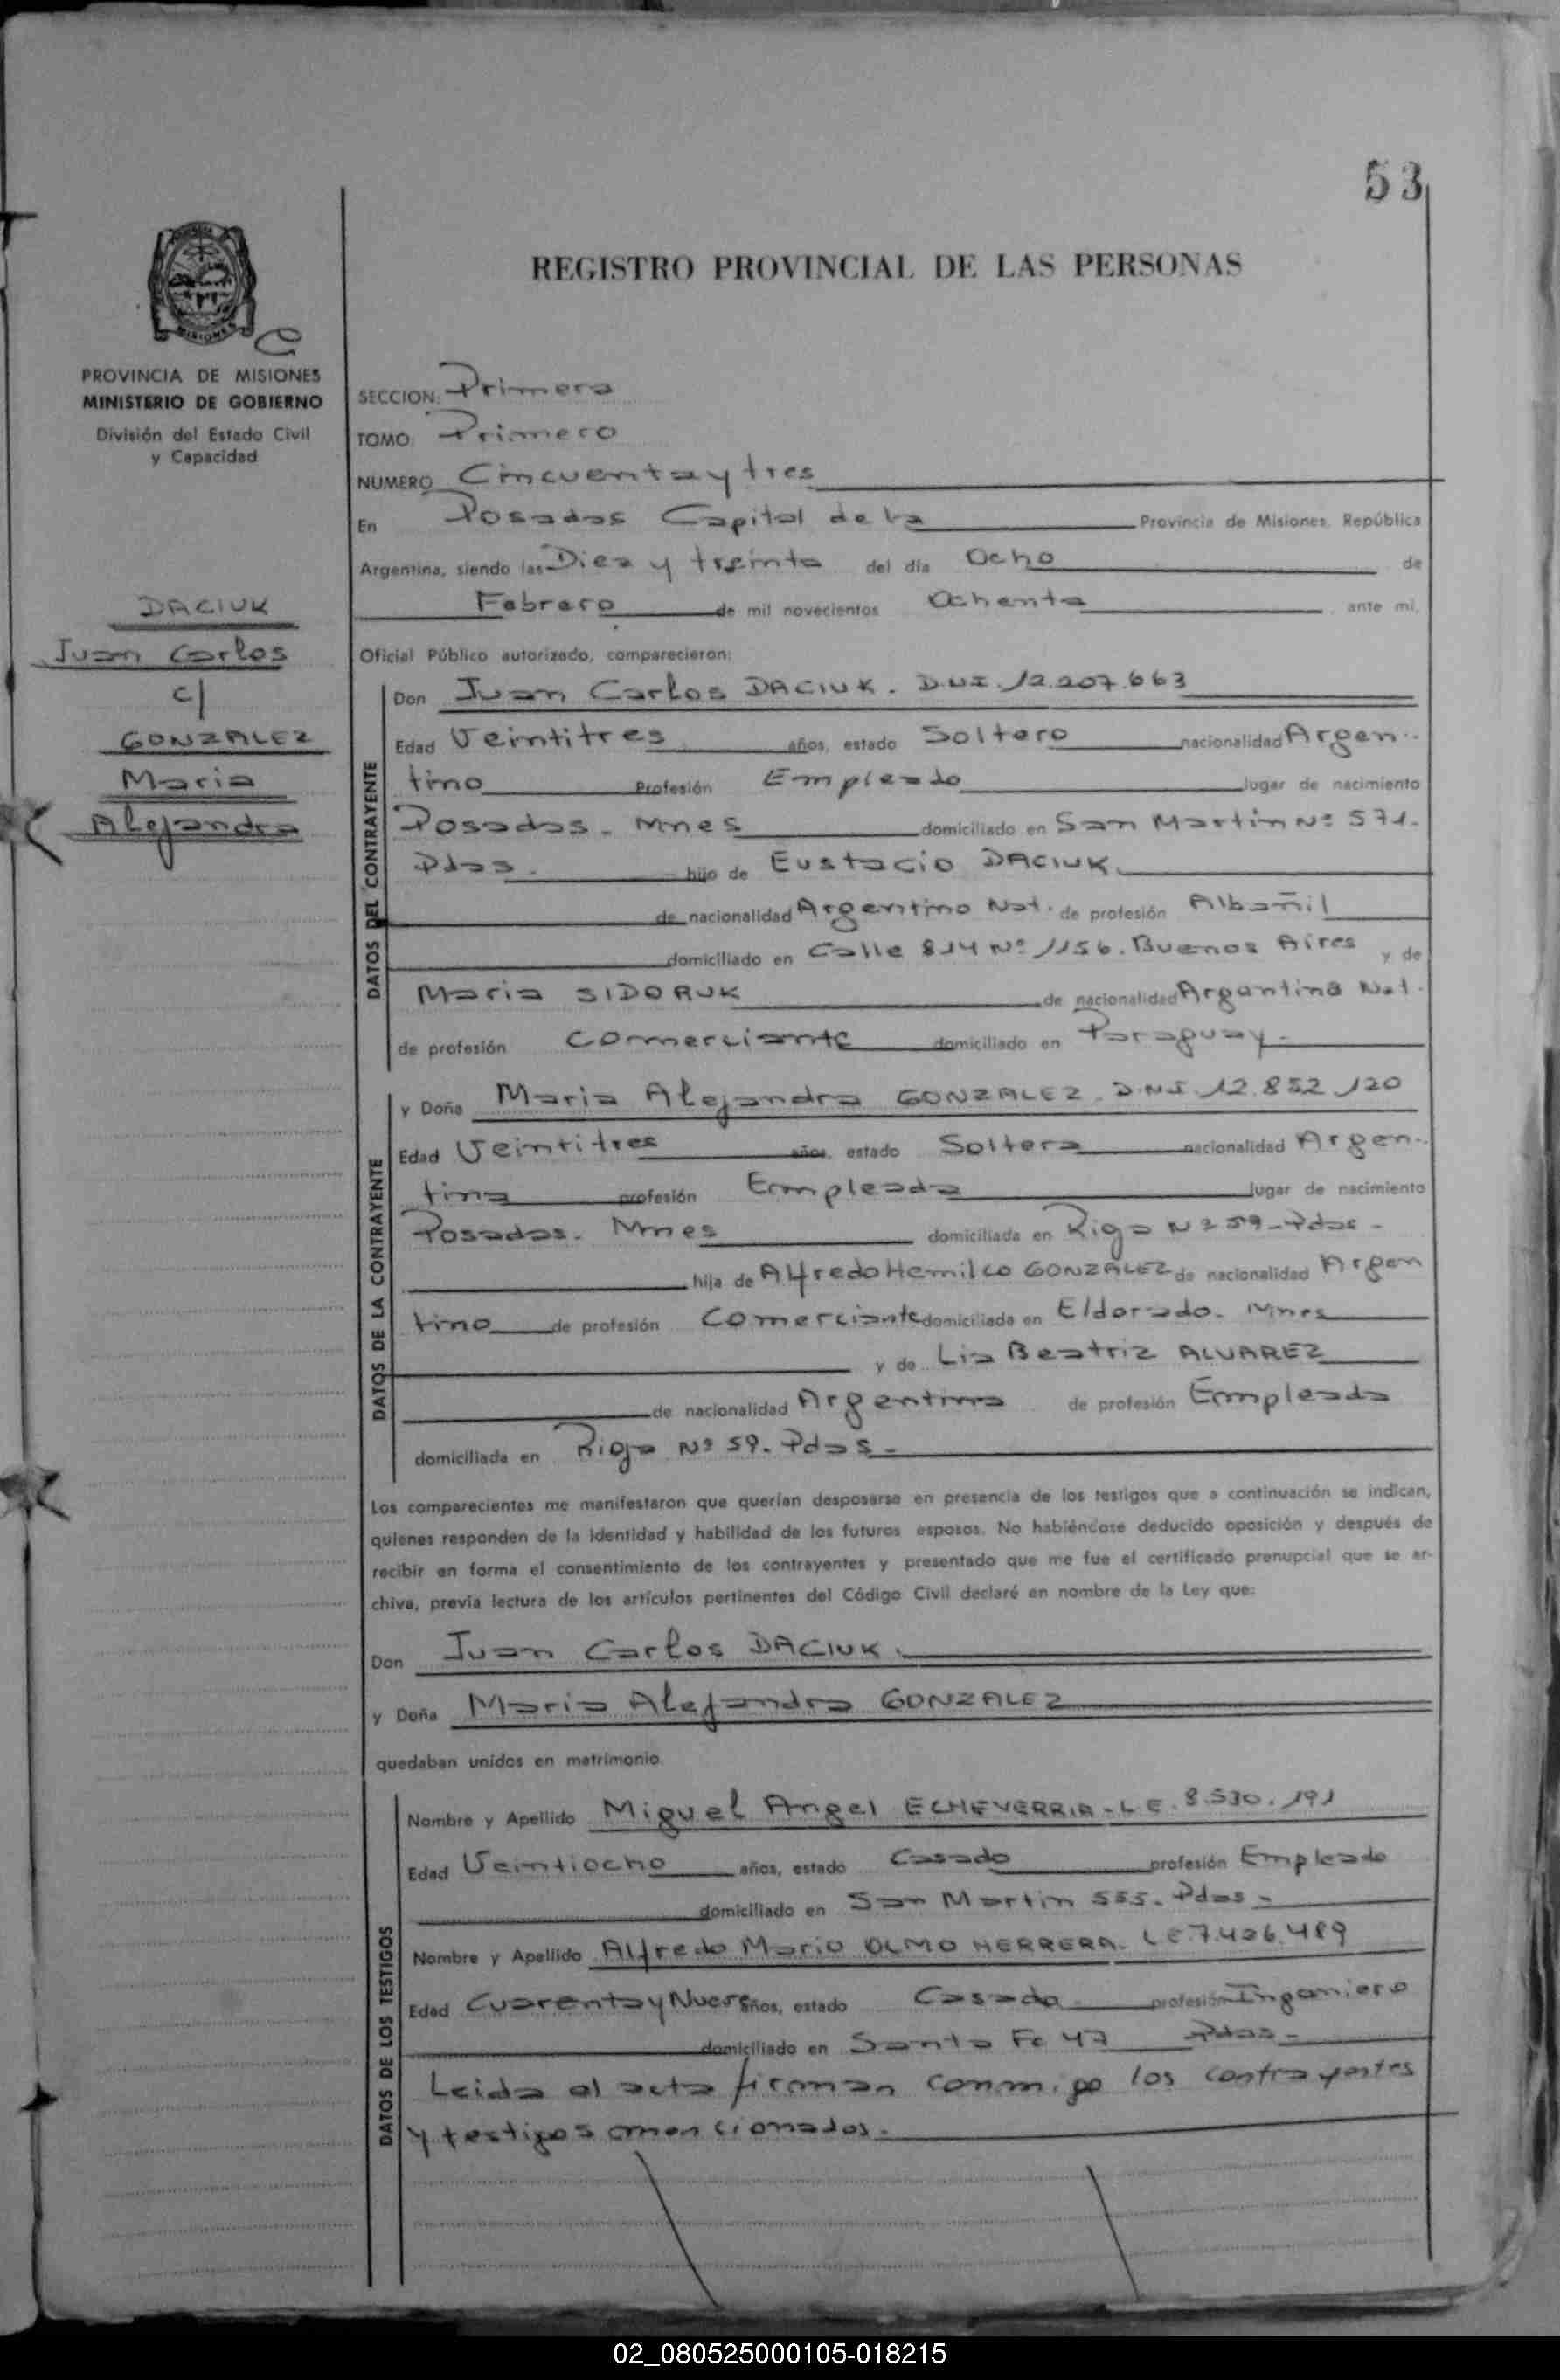 53
REGISTRO PROVINCIAL DE LAS PERSONAS
MISIONES
PROVINCIA DE MISIONES
MINISTERIO DE GOBIERNO
División del Estado Civil
y Capacidad
DACIUK
Juan Carlos
c/
GONZALEZ
Maria
Alejandra
SECCION: Primera
TOMO: Primero
NUMERO Cincuenta y tres
En Posadas Capital de la Provincia de Misiones, República
Argentina, siendo las Diez y treinta del día Ocho de
Febrero de mil novecientos Ochenta ante mi,
Oficial Público autorizado, comparecieron:
DATOS DEL CONTRAYENTE
Don Juan Carlos DACIUK. D.N.I. 12.207.663
Edad Veintitres años, estado Soltero nacionalidad Argen-
tino Profesión Empleado lugar de nacimiento
Posadas. Mnes domiciliado en San Martin Nº 571.
Pdas. hijo de Eustacio DACIUK.
de nacionalidad Argentino Nat. de profesión Albañil
domiciliado en Calle 814 Nº 1156. Buenos Aires y de
Maria SIDORUK de nacionalidad Argentina Nat.
de profesión Comerciante domiciliado en Paraguay.
DATOS DE LA CONTRAYENTE
y Doña Maria Alejandra GONZALEZ. D.N.I. 12.852.120
Edad Veintitres años, estado Soltera nacionalidad Argen-
tina profesión Empleada lugar de nacimiento
Posadas. Mnes domiciliada en Rioja Nº 59-Pdas-
hija de Alfredo Hemilco GONZALEZ de nacionalidad Argen
tino de profesión Comerciante domiciliado en Eldorado. Mnes
y de Lia Beatriz ALVAREZ
de nacionalidad Argentina de profesión Empleada
domiciliada en Rioja Nº 59. Pdas-
Los comparecientes me manifestaron que querían desposarse en presencia de los testigos que a continuación se indican,
quienes responden de la identidad y habilidad de los futuros esposos. No habiéndose deducido oposición y después de
recibir en forma el consentimiento de los contrayentes y presentado que me fue el certificado prenupcial que se ar-
chiva, previa lectura de los artículos pertinentes del Código Civil declaré en nombre de la Ley que:
Don Juan Carlos DACIUK.
y Doña Maria Alejandra GONZALEZ
quedaban unidos en matrimonio
DATOS DE LOS TESTIGOS
Nombre y Apellido Miguel Angel ECHEVERRIA-L E. 8.530.191
Edad Veintiocho años, estado Casado profesión Empleado
domiciliado en San Martin 555. Pdas-
Nombre y Apellido Alfredo Mario OLMO HERRERA. L E.7.426.489
Edad Cuarenta y Nueve años, estado Casado profesión Ingeniero
domiciliado en Santa Fe 47 Pdas-
Leida el acta firman conmigo los contrayentes
y testigos mencionados.
02_080525000105-018215